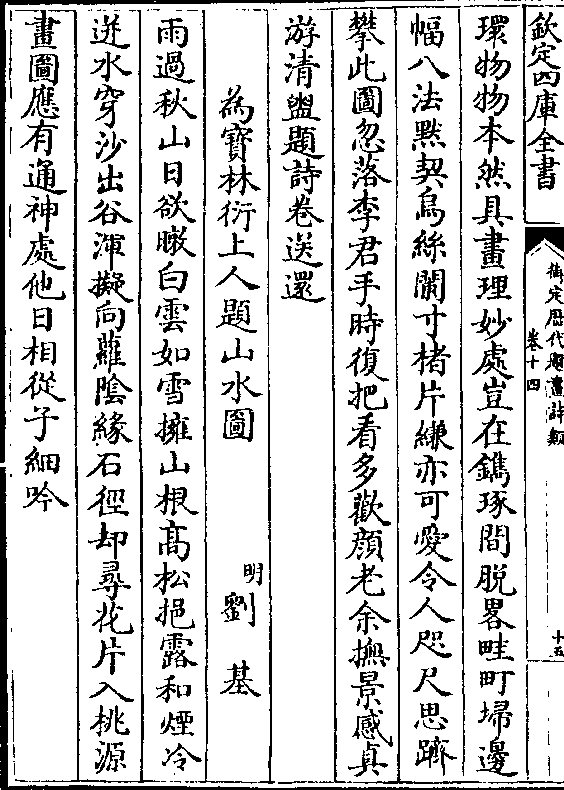 欽定四庫全書
御定歴代題畫詩類
卷十四
十五
環物物本然具畫理妙處豈在鐫琢間脫畧畦町埽邊
幅八法黙契烏絲闌寸楮片縑亦可愛令人咫尺思躋
攀此圖忽落李君手時復把看多歡顔老余撫景感真
游清盥題詩卷送還
為寳林衍上人題山水圖
明劉基
雨過秋山日欲暾白雲如雪擁山根髙松挹露和煙冷
迸水穿沙出谷渾擬向蘿陰緣石徑却尋花片入桃源
畫圖應有通神處他日相從子細吟